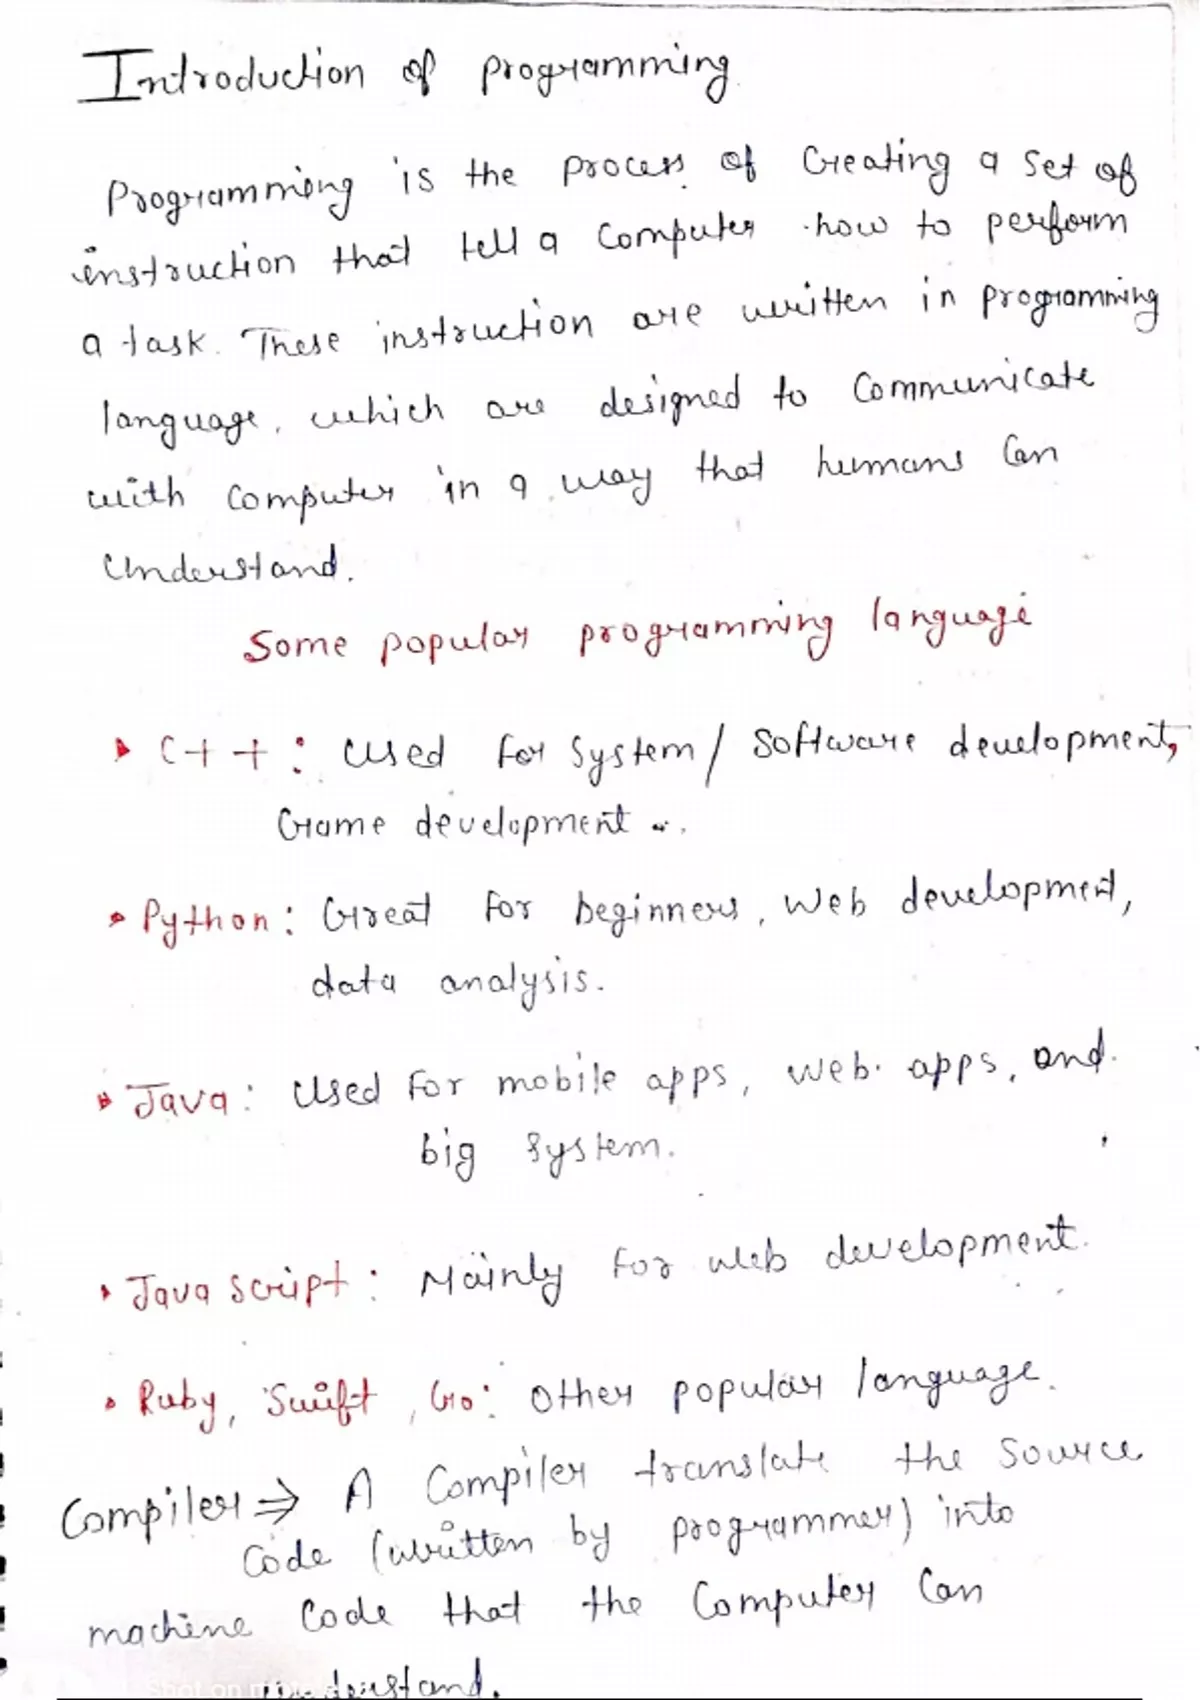 Introduction of programming
Programming is the process of Creating a set of
instruction that tell a Computer how to perform
a task. These instruction are written in programming
language, which are designed to Communicate
with Computer in a way that humans Can
Understand.
Some popular programming language
C++: Used for System/ Software development,
Game development ..
Python: Great for beginners, Web development,
data analysis.
Java: Used for mobile apps, web apps, and
big system.
Java script: Mainly for web development.
Ruby, Swift, Go: Other popular language.
Compiler ⇒ A Compiler translate the Source
Code (written by programmer) into
machine Code that the Computer Can
understand.
Shot on